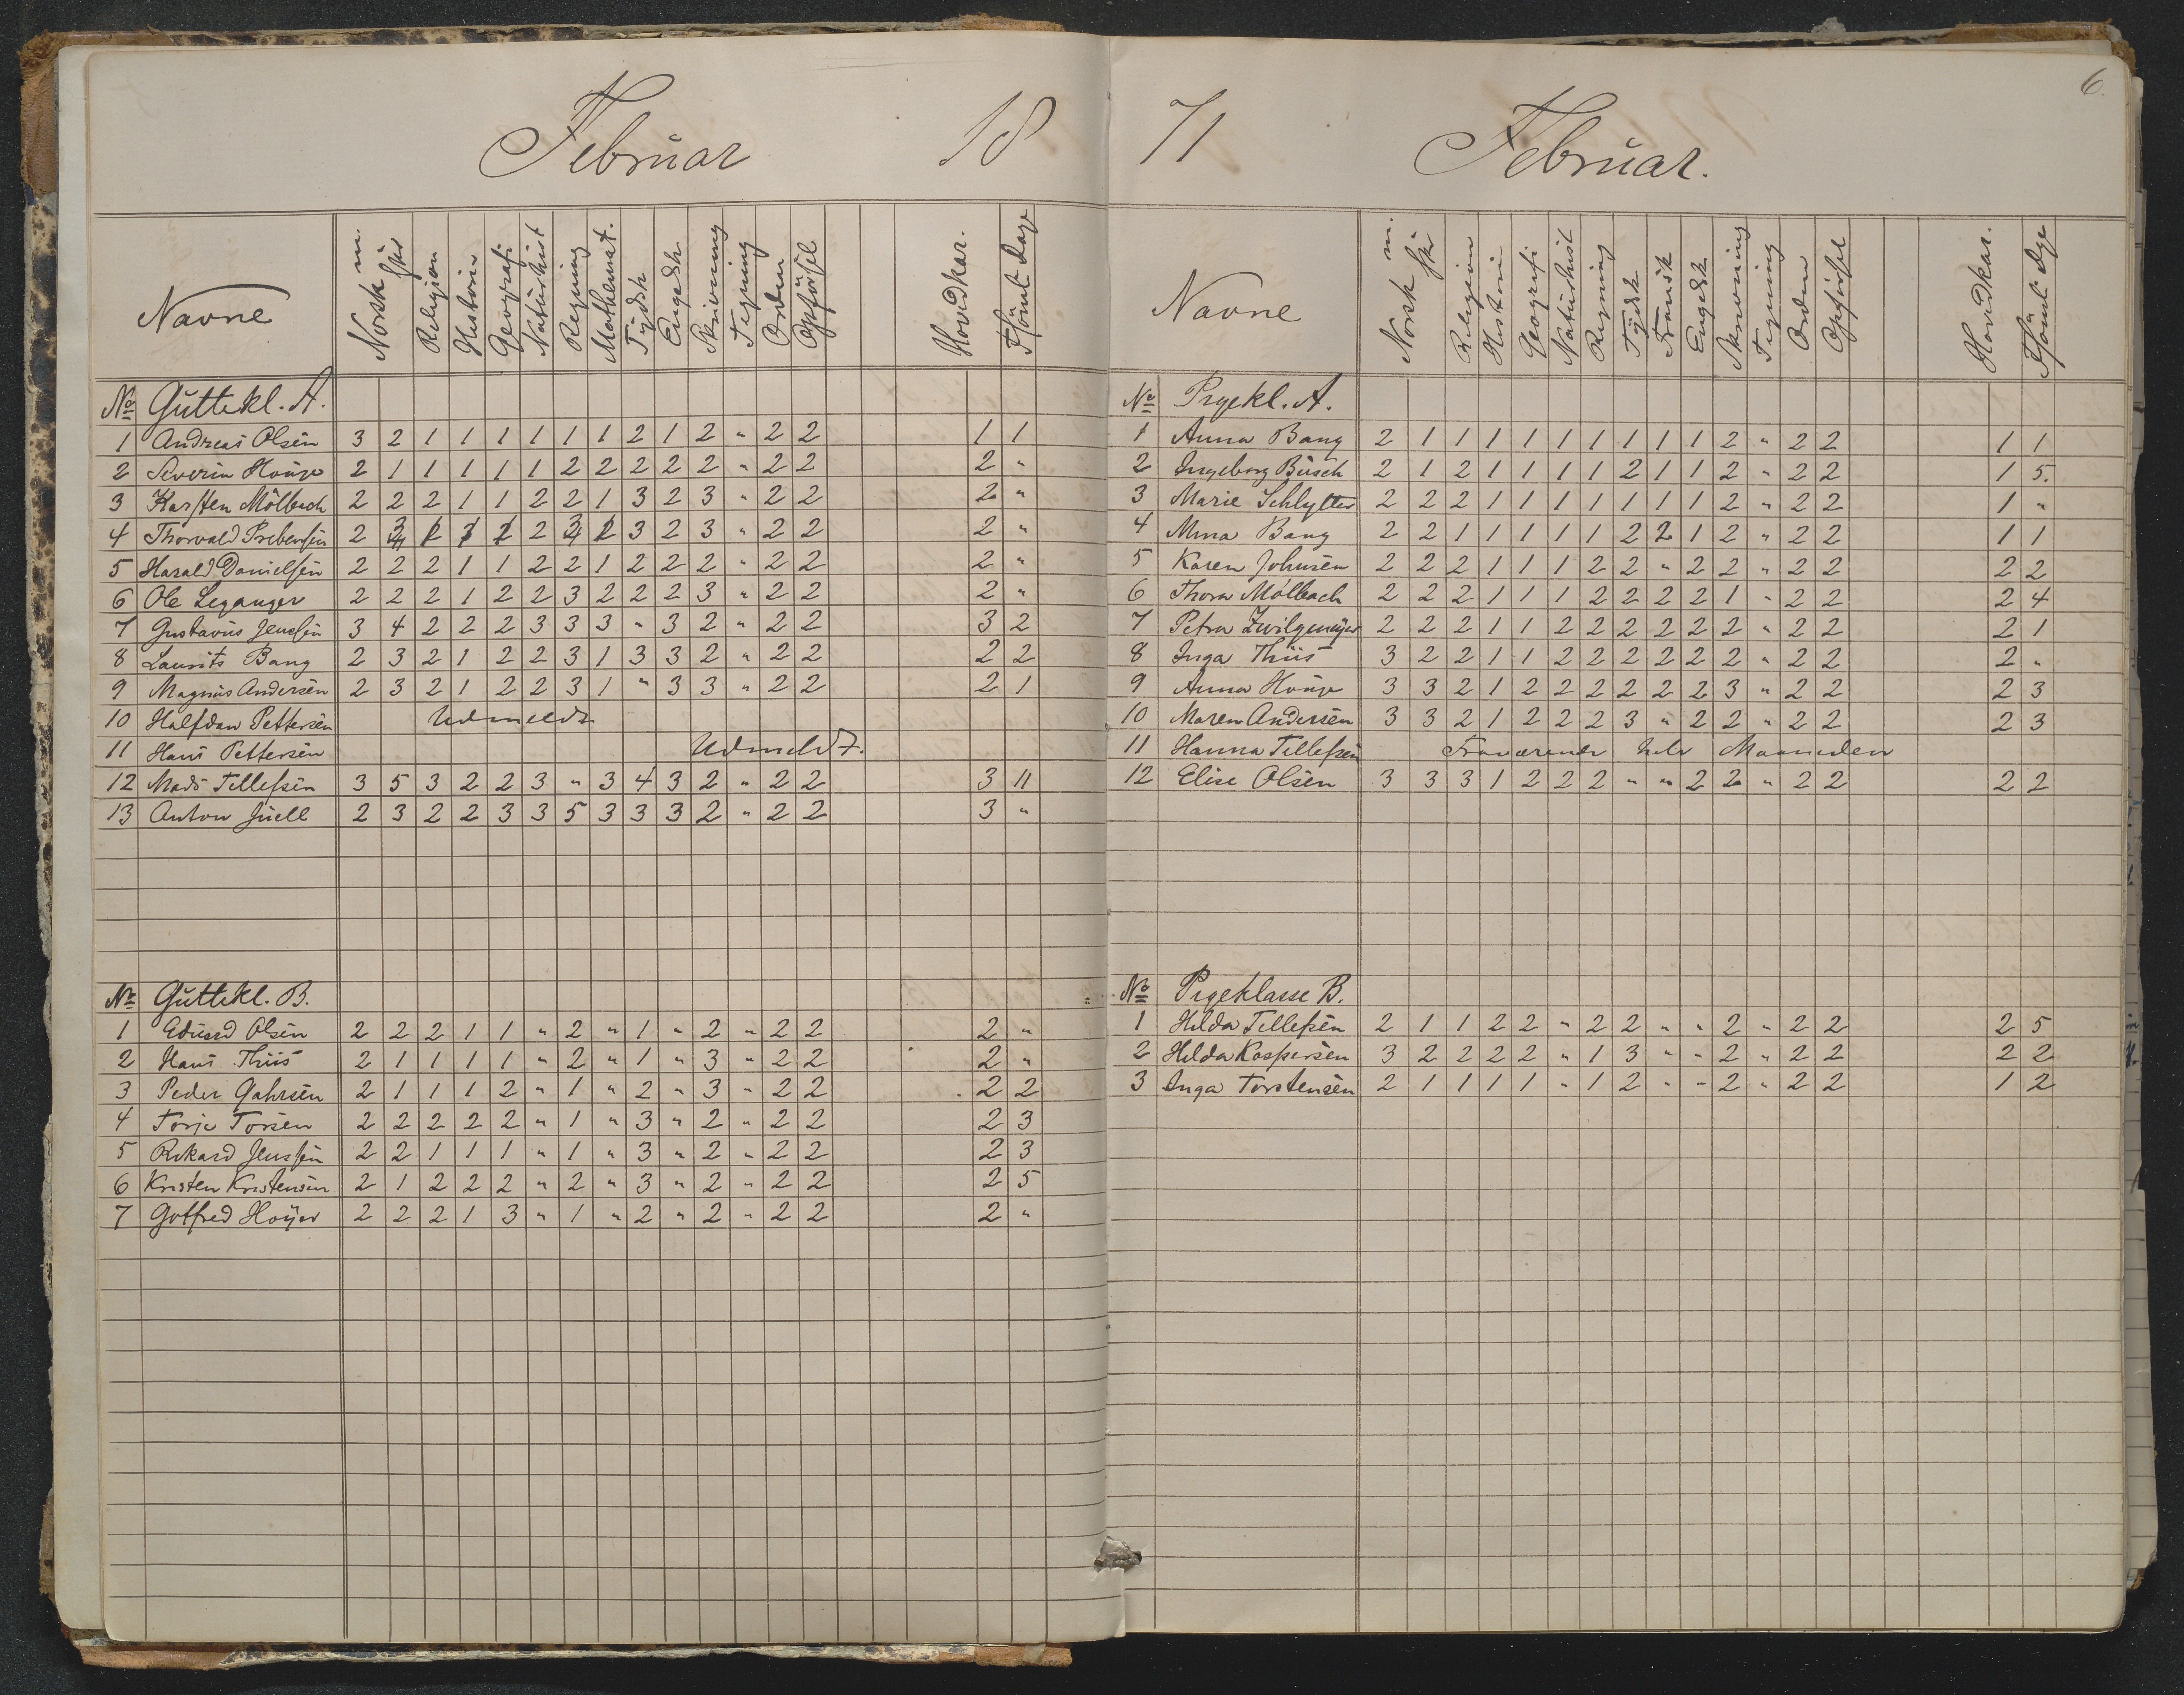 Februar 18
Navne Norsk m. skr Religion Historie Geografi Naturhist Regning Mathemat. Tydsk Engelsk Skrivning Tegning Orden Opførsel Hovedkar. Forsømt Dage
No Guttekl. A.
1 Andreas Olsen 3 2 1 1 1 1 1 1 2 1 2 " 2 2 1 1
2 Severin Houge 2 1 1 1 1 1 2 2 2 2 2 " 2 2 2 "
3 Karsten Mölbach 2 2 2 1 1 2 2 1 3 2 3 " 2 2 2 "
4 Thorvald Prebensen 2 2 3 2 3 " 2 2 2 "
5 Harald Danielsen 2 2 2 1 1 2 2 1 2 2 2 " 2 2 2 "
6 Ole Leganger 2 2 2 1 2 2 3 2 2 2 3 " 2 2 2 "
7 Gustavus Jensen 3 4 2 2 2 3 3 3 " 3 2 " 2 2 3 2
8 Laurits Bang 2 3 2 1 2 2 3 1 3 3 2 " 2 2 2 2
9 Magnus Andersen 2 3 2 1 2 2 3 1 " 3 3 " 2 2 2 1
10 Halfdan Pettersen Udmeldt
11 Hans Pettersen Udmeldt.
12 Mads Tellefsen 3 5 3 2 2 3 " 3 4 3 2 " 2 2 3 11
13 Anton Juell 2 3 2 2 3 3 5 3 3 3 2 " 2 2 3 "
No Guttekl. B.
1 Eduard Olsen 2 2 2 1 1 " 2 " 1 " 2 " 2 2 2 "
2 Hans Thiis 2 1 1 1 1 " 2 " 1 " 3 " 2 2 2 "
3 Peder Gahrsen 2 1 1 1 2 " 1 " 2 " 3 " 2 2 2 2
4 Torje Torsen 2 2 2 2 2 " 1 " 3 " 2 " 2 2 2 3
5 Rikard Jenssen 2 2 1 1 1 " 1 " 3 " 2 " 2 2 2 3
6 Kristen Kristensen 2 1 2 2 2 " 2 " 3 " 2 " 2 2 2 5
7 Gotfred Høyer 2 2 2 1 3 " 1 " 2 " 2 " 2 2 2 "
71 Februar. 6.
Navne Norsk m. skr Religion Historie Geografi Naturhist Regning Tydsk Fransk Engelsk Skrivning Tegning Orden Opførsel Hovedkar. Forsømt Dge
No Pigekl. A.
1 Anna Bang 2 1 1 1 1 1 1 1 1 1 2 " 2 2 1 1
2 Ingeborg Busch 2 1 2 1 1 1 1 2 1 1 2 " 2 2 1 5.
3 Marie Schlytter 2 2 2 1 1 1 1 1 1 1 2 " 2 2 1 "
4 Mina Bang 2 2 1 1 1 1 1 2 2 1 2 " 2 2 1 1
5 Karen Johnsen 2 2 2 1 1 1 2 2 " 2 2 " 2 2 2 2
6 Thora Mölbach 2 2 2 1 1 1 2 2 2 2 1 " 2 2 2 4
7 Petra Zwilgmeyer 2 2 2 1 1 2 2 2 2 2 2 " 2 2 2 1
8 Inga Thiis 3 2 2 1 1 2 2 2 2 2 2 " 2 2 2 "
9 Anna Houge 3 3 2 1 2 2 2 2 2 2 3 " 2 2 2 3
10 Maren Andersen 3 3 2 1 2 2 2 3 " 2 2 " 2 2 2 3
11 Hanna Tellefsen Fraværende hele Maaneden
12 Elise Olsen 3 3 3 1 2 2 2 " " 2 2 " 2 2 2 2
No Pigeklasse B.
1 Hilda Tellefsen 2 1 1 2 2 " 2 2 " " 2 " 2 2 2 5
2 Hilda Kaspersen 3 2 2 2 2 " 1 3 " " 2 " 2 2 2 2
3 Inga Torstensen 2 1 1 1 1 " 1 2 " " 2 " 2 2 1 2